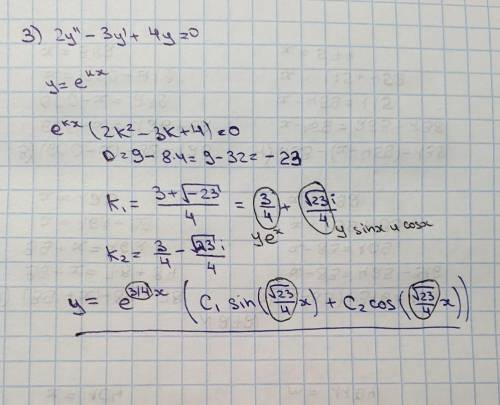 3) 2y'' - 3y' + 4y = 0
y = e^{kx}
e^{kx} (2k² - 3k + 4) = 0
D = 9 - 8·4 = 9 - 32 = - 23
k₁ = \frac{3 + \sqrt{-23}}{4} = \frac{3}{4} + \frac{\sqrt{23}}{4} i
у e^x у sinx и cosx
k₂ = \frac{3}{4} - \frac{\sqrt{23}}{4} i
y = e^{(3/4)x} ( C₁ sin(\frac{\sqrt{23}}{4} x) + C₂ cos(\frac{\sqrt{23}}{4} x) )